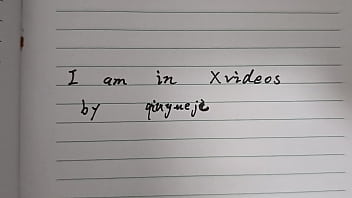 I am in Xvideos
by qingyuejie